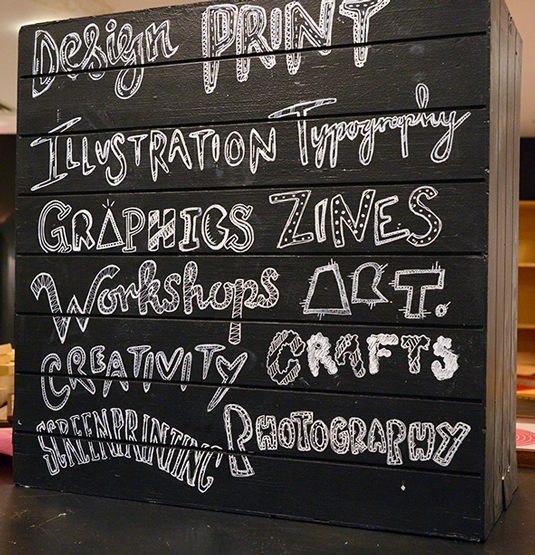 Design PRINT
ILLUSTRATION Typography
GRAPHICS ZINES
Workshops ART.
CREATIVITY CRAFTS
SCREENPRINTING PHOTOGRAPHY